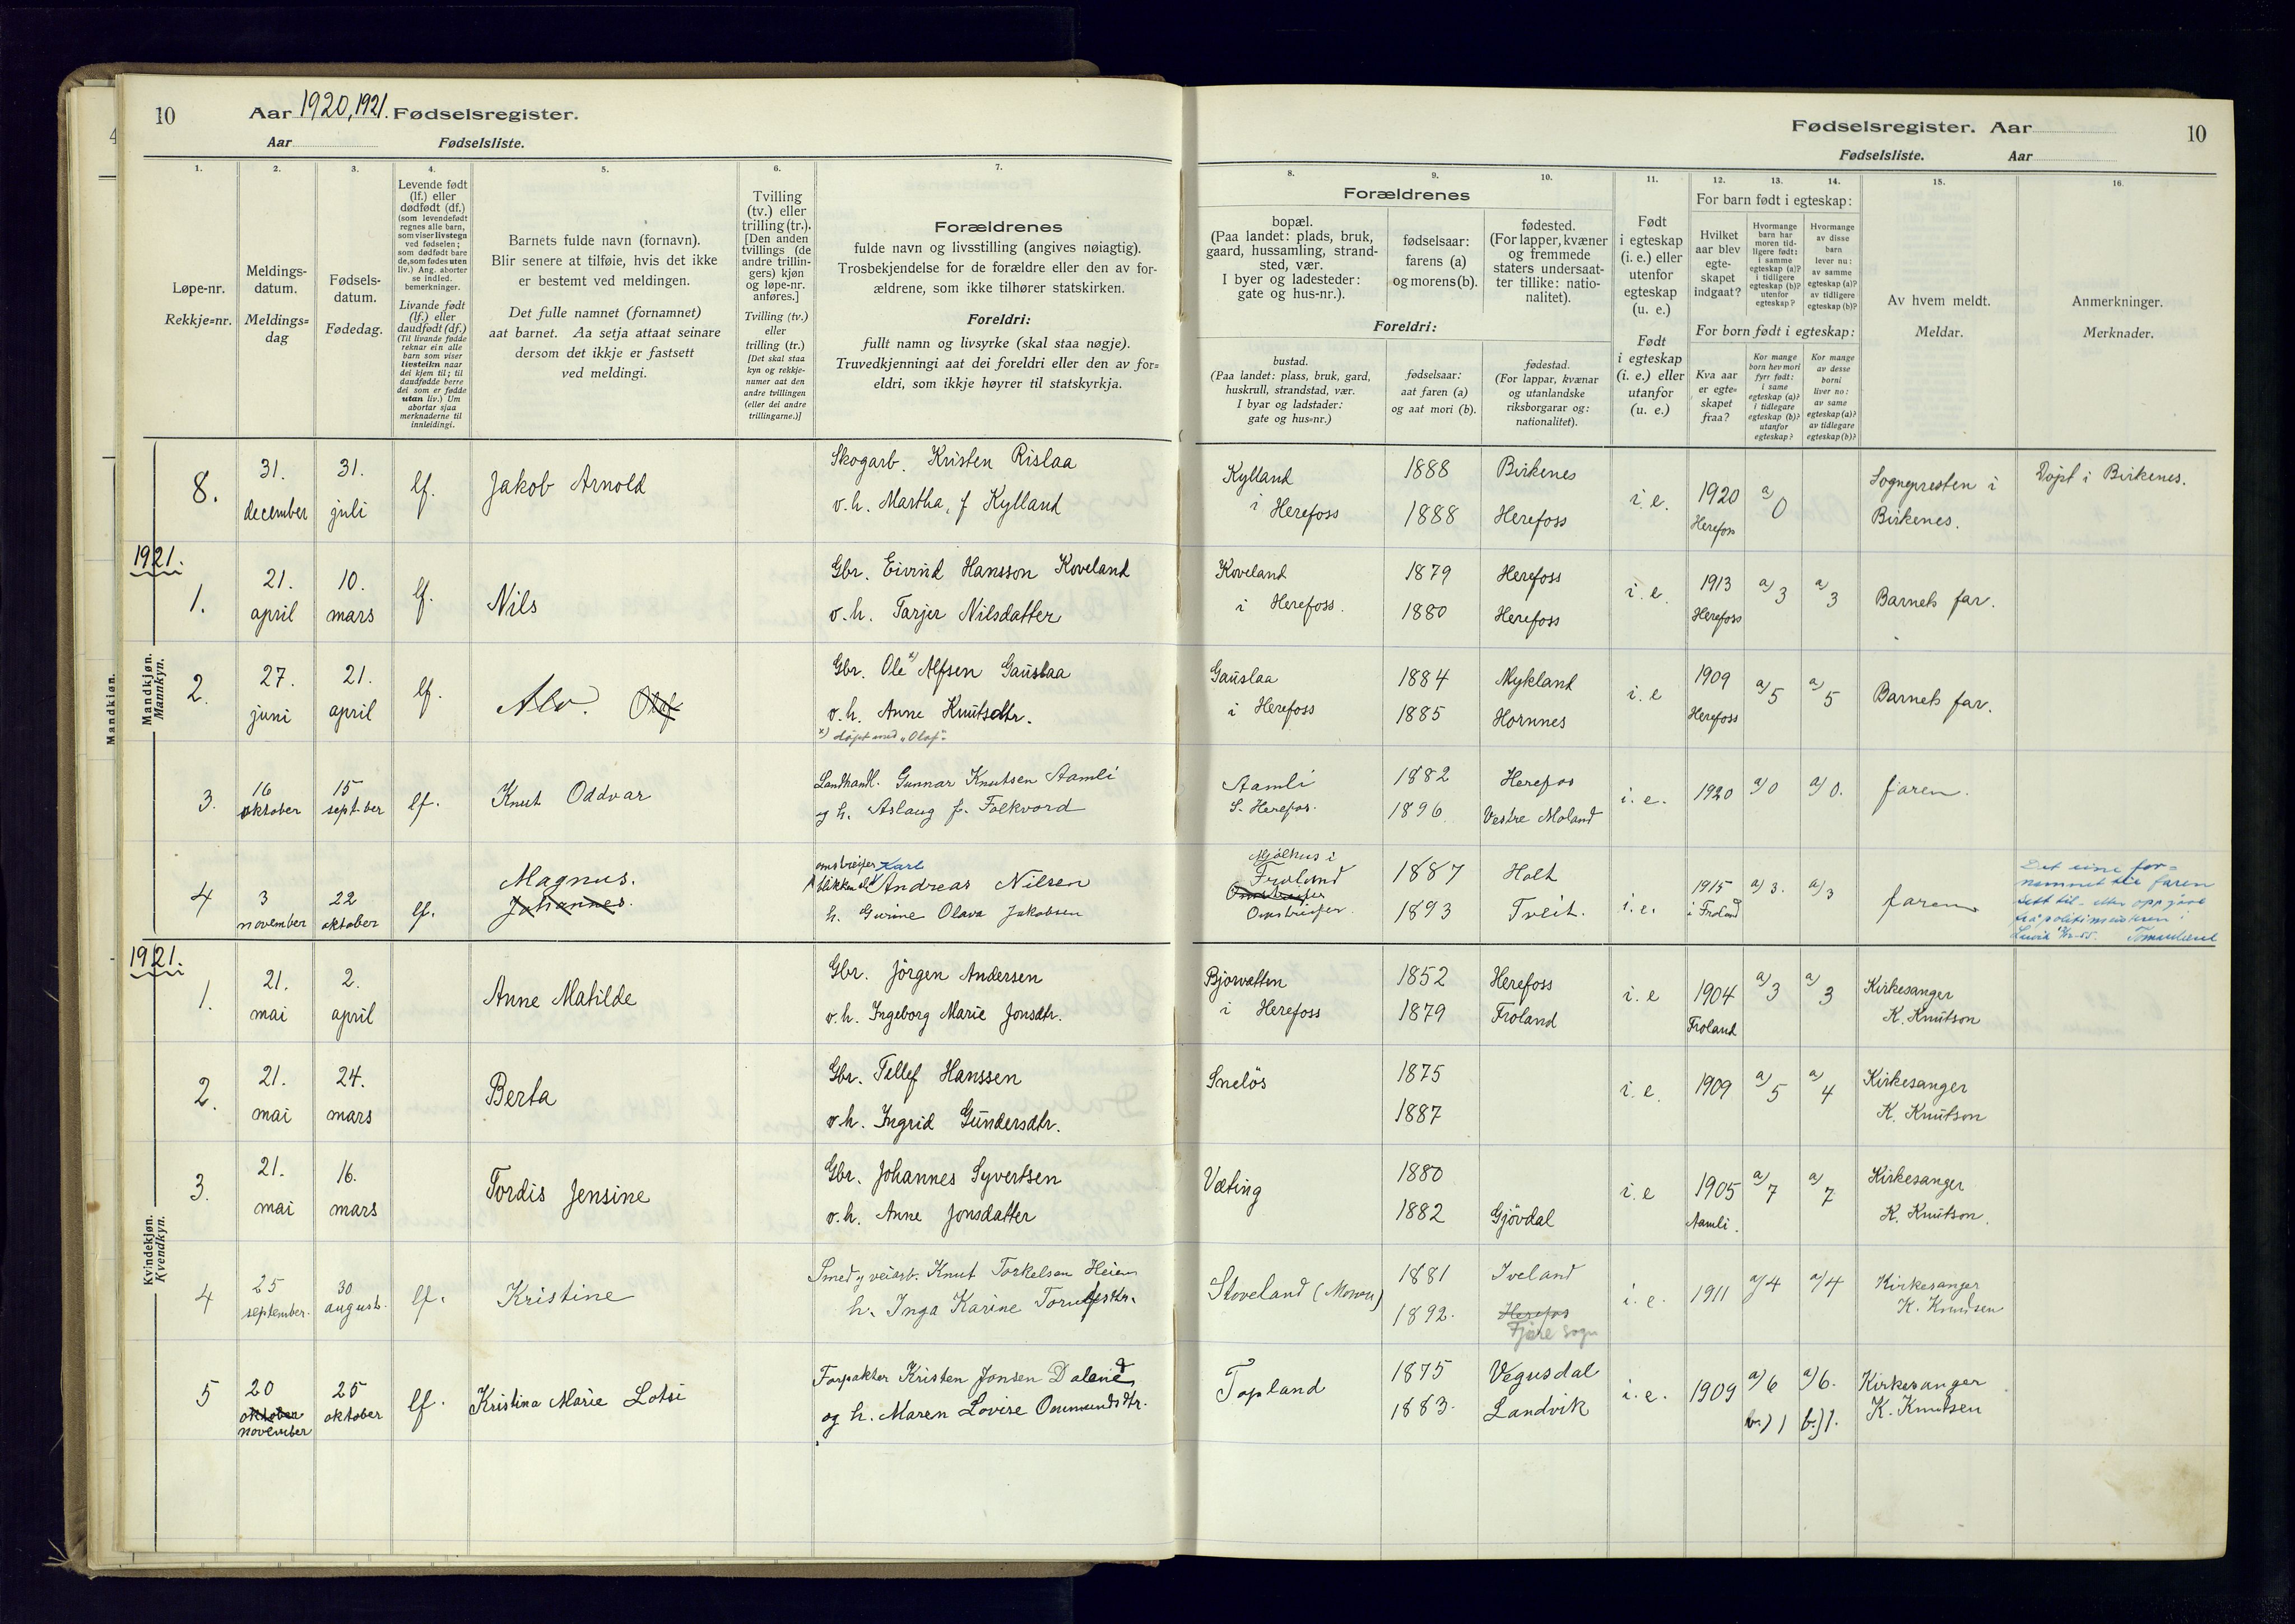 10
Aar 1920, 1921. Fødselsregister.
Aar Fødselsliste.
Fødselsregister. Aar
10
Fødselsliste. Aar
1.
Løpe-nr.
Rekkje=nr.
2.
Meldings-
datum.
Meldings=
dag
3.
Fødsels-
datum.
Fødedag.
4.
Levende født
(lf.) eller
dødfødt (df.)
(som levendefødt
regnes alle barn,
som viser livstegn
ved fødselen;
som dødfødt bare
de, som fødes uten
liv.) Ang. aborter
se indled.
bemerkninger.
Livande født
(lf.) eller
daudfødt (df.)
(Til livande fødde
reknar ein alle
barn som viser
livsteikn naar
dei kjem til; til
daudfødde berre
dei som er fødde
utan liv.) Um
abortar sjaa
merknaderne til
innleidingi.
5.
Barnets fulde navn (fornavn).
Blir senere at tilføie, hvis det ikke
er bestemt ved meldingen.
Det fulle namnet (fornamnet)
aat barnet. Aa setja attaat seinare
dersom det ikkje er fastsett
ved meldingi.
6.
Tvilling
(tv.) eller
trilling (tr.).
[Den anden
tvillings (de
andre trillin-
gers) kjøn
og løpe-nr.
anføres.]
Tvilling (tv.)
eller
trilling (tr.)
[Det skal staa
kyn og rekkje-
numer aat den
andre tvillingen
(eller dei andre
trillingarne.)]
7.
Forældrenes
fulde navn og livsstilling (angives nøiagtig).
Trosbekjendelse for de forældre eller den av for-
ældrene, som ikke tilhører statskirken.
Foreldri:
fullt namn og livsyrke (skal staa nøgje).
Truvedkjenningi aat dei foreldri eller den av for=
eldri, som ikkje høyrer til statskyrkja.
8.
Forældrenes
bopæl.
(Paa landet: plads, bruk,
gaard, hussamling, strand-
sted, vær.
I byer og ladesteder:
gate og hus-nr.).
Foreldri:
bustad.
(Paa landet: plass, bruk, gard,
huskrull, strandstad, vær.
I byar og ladstader:
gate og hus=nr.)
9.
fødselsaar:
farens (a)
og morens (b).
fødselsaar:
aat faren (a)
og aat mori (b).
10.
fødested.
(For lapper, kvæner
og fremmede
staters undersaat-
ter tillike: natio-
nalitet).
fødestad.
(For lappar, kvænar
og utanlandske
riksborgarar og:
nationalitet).
11.
Født
i egteskap
(i. e.) eller
utenfor
egteskap
(u. e.)
Født
i egteskap
(i. e.) eller
utanfor
(u. e.)
12.
For barn født i egteskap:
Hvilket
aar blev
egte-
skapet
indgaat?
For born født i egteskap:
Kva aar
er egte=
skapet
fraa?
13.
Hvormange
barn har
moren tid-
ligere født:
i samme
egteskap (a)?
i tidligere
egteskap (b)?
utenfor
egteskap?
Kor mange
born hev mori
fyrr født:
i same
egteskap (a)?
i tidlegare
egteskap (b)?
utanfor
egteskap?
14.
Hvormange
av disse
barn
lever nu:
av samme
egteskap (a)?
av tidligere
egteskap (b)?
Kor mange
av desse
borni
liver no:
av same
egteskap (a)?
av tidlegare
egteskap (b)?
15.
Av hvem meldt.
Meldar.
16.
Anmerkninger.
Merknader.
Mandkjøn.
Mandkjøn.
Mannkyn.
8. 31. december 31. juli lf. Jakob Arnold Skogarb. Kristen Rislaa
o. h. Martha, f Kylland
Kylland i Herefoss 1888 1888 Birkenes Herefoss i. e. 1920 Herefoss a) 0 Sognepresten i Birkenes. Døpt i Birkenes.
1921.
1. 21. april 10. mars lf. Nils Gbr. Eivind Hansson Koveland
o. h. Tarjer Nilsdatter
Koveland i Herefoss. 1879 1880 Herefoss Herefoss i. e. 1913 Herefoss a) 3 a) 3 Barnets far.
2. 27. juni 21. april lf. Alv. Olaf Gbr. Ole x) Alfsen Gauslaa
o. h. Anne Knutsdtr.
x) døpt med "Olaf".
Gauslaa i Herefoss 1884 1885 Mykland Hornnes i. e 1909 Herefoss a) 5 a) 5 Barnets far.
3. 16 oktober 15 sept.ber lf. Knut Oddvar Landhandl. Gunnar Knutsen Aamli
og h. Aslaug f. Folkvord
Aamli S. Herefos. 1882 1896 Herefos Vestre Moland i. e. 1920 a) 0 a) 0. faren.
4 3 november 22 oktober lf. Magnus. Johannes. omstreifer Karl
blikkensl. Andreas Nilsen
h. Gurine Olava Jakobsen
Mjølhus i Froland Omstreifer Omstreifer. 1887 1893 Holt Tveit. i. e. 1915 i Froland a) 3. a) 3 faren
Det eine for-
nemnet til faren
sett til etter oppgave
frå politimeisteren i
1921.
Kvindekjøn.
Kvendkyn.
1. 21. mai 2. april Anne Matilde Gbr. Jörgen Andersen
o. h. Ingeborg Marie Jonsdtr.
Bjorvatten i Herefoss 1852 1879 Herefoss Froland i. e 1904 Froland a) 3 a) 3 Kirkesanger K. Knutson
2. 21. mai 24. mars Berta Gbr. Tellef Hanssen
o. h. Ingrid Gundersdtr.
Snelös 1875 1887 i. e. 1909 a) 5 a) 4 Kirkesanger K. Knutson
3. 21. mai 16. mars Tordis Jensine Gbr. Johannes Syvertsen
o. h. Anne Jonsdatter
Væting 1880 1882 Gjövdal i. e 1905 Aamli. a) 7 a) 7 Kirkesanger K. Knutson.
4 25 september. 30 august. lf. Kristine Smed og veiarb. Knut Torkelsen Heien
h. Inga Karine Torulfsdtr.
Stoveland (Moen) 1881 1892. Iveland Herefos Fjære sogn i. e. 1911 a) 4 a) 4 Kirkesanger K. Knudsen
5 20 oktober november 25 oktober lf. Kristina Marie Lotsi Forpakter Kristen Jonsen Dalene
og h. Maren Lovise Omundsdtr.
Topland 1875 1883. Vegusdal Landvik i. e. 1909 a) 6 b.) 1 a) 6. b.) 1. Kirkesanger K. Knudsen